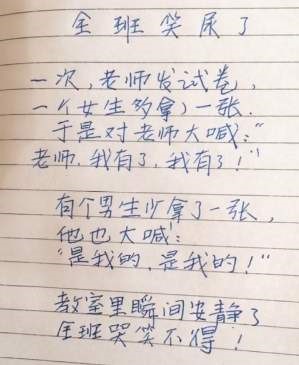 全班笑尿了
一次,老师发试卷,
一个女生多拿了一张.
于是对老师大喊:“
老师.我有了.我有了!”
有个男生少拿了一张,
他也大喊:
“是我的,是我的!”
教室里瞬间安静了
全班哭笑不得!